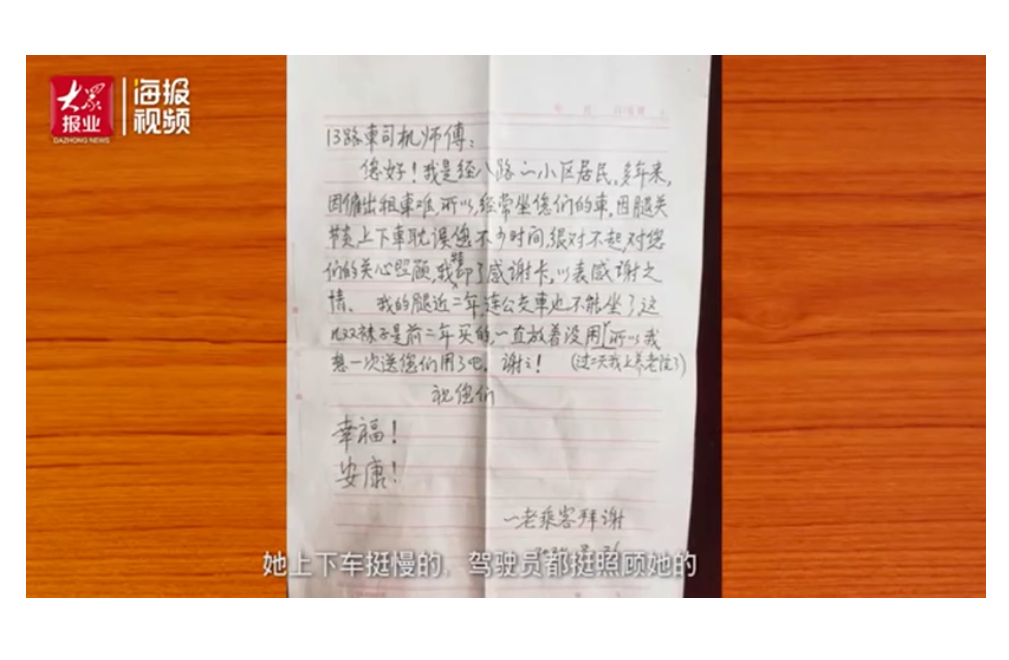 大众报业
DAZHONG NEWS
海报视频
13路車司机师傅：
您好！我是经八路一小区居民，多年来，
因雇出租車难，所以，经常坐您们的车，因腿关
节炎，上下車耽误您不少时间，很对不起，对您
们的关心照顾，我特印了感谢卡，以表感谢之
情。 我的腿近二年连公交車也不能坐了，这
几双袜子是前二年买的，一直放着没用，所以我
想一次送您们用了吧，谢之！ （过二天我上养老院了）
祝您们
幸福！
安康！
一老乘客拜谢
她上下车挺慢的，驾驶员都挺照顾她的